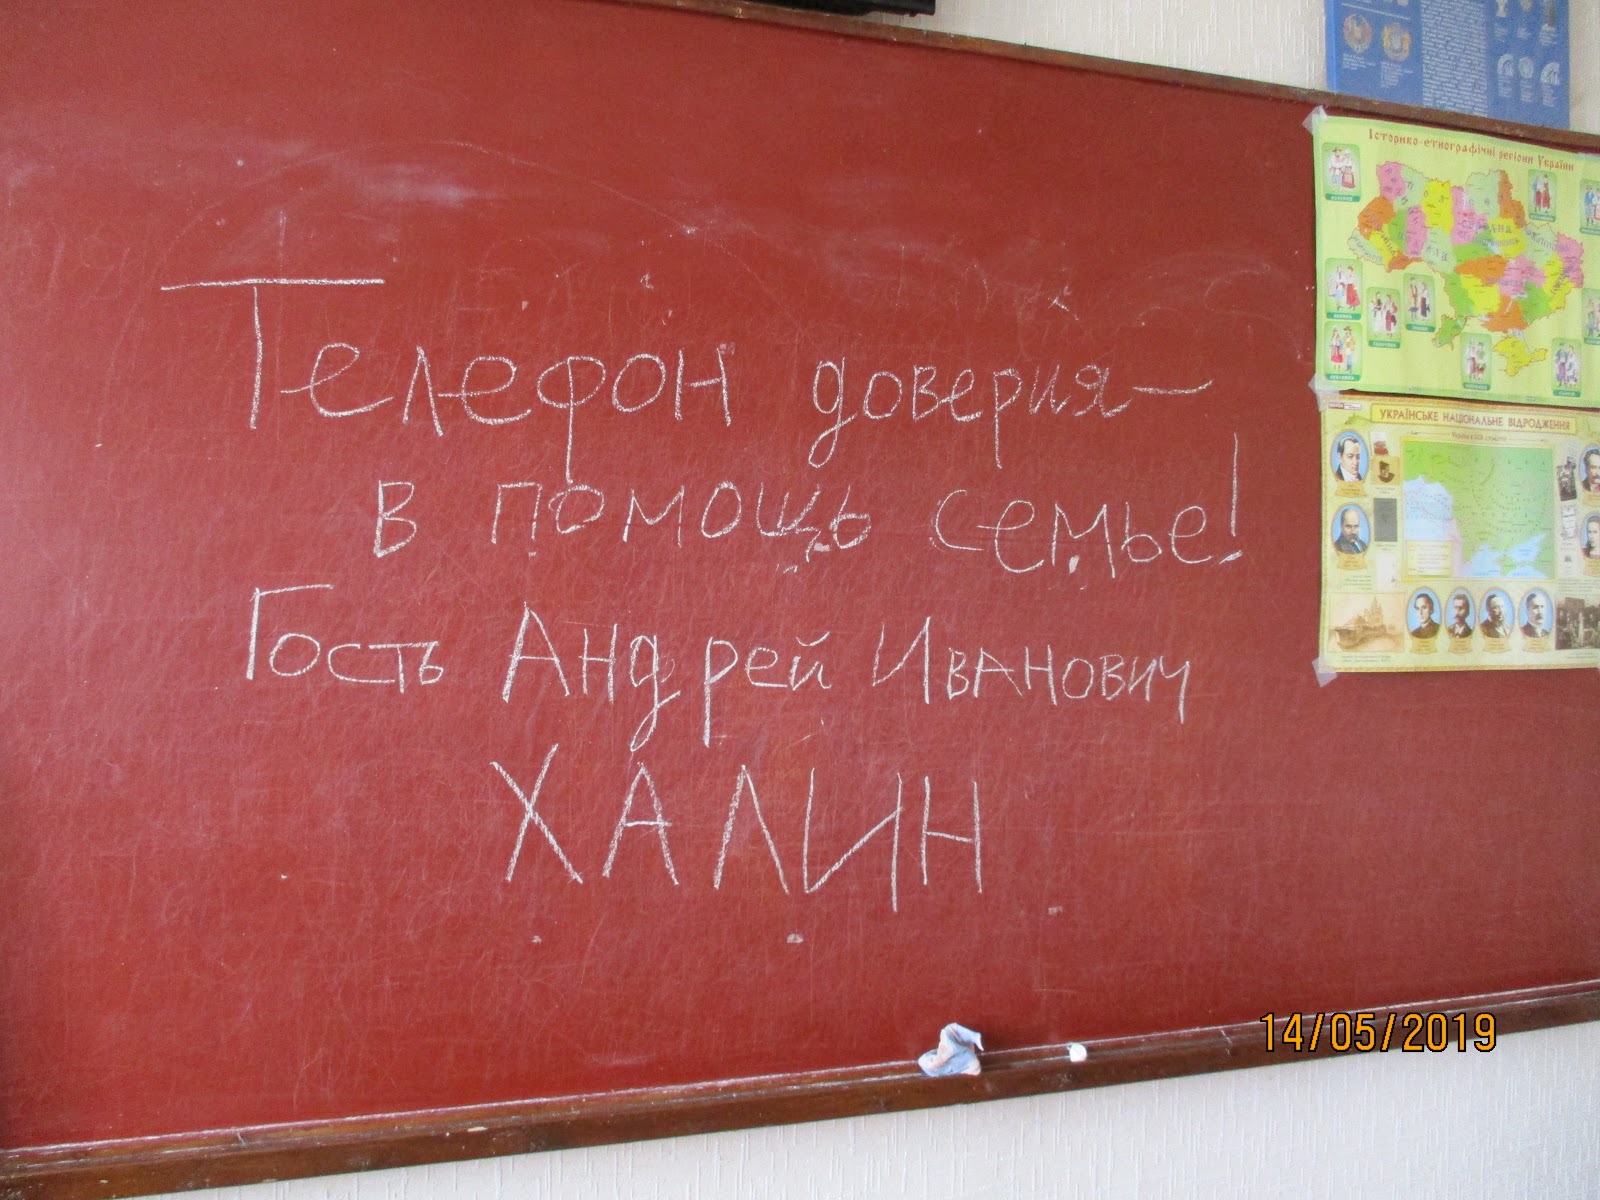 Телефон доверия —
в помощь семье!
Гость Андрей Иванович
ХАЛИН
Історико-етнографічні регіони України
УКРАЇНСЬКЕ НАЦІОНАЛЬНЕ ВІДРОДЖЕННЯ
14/05/2019